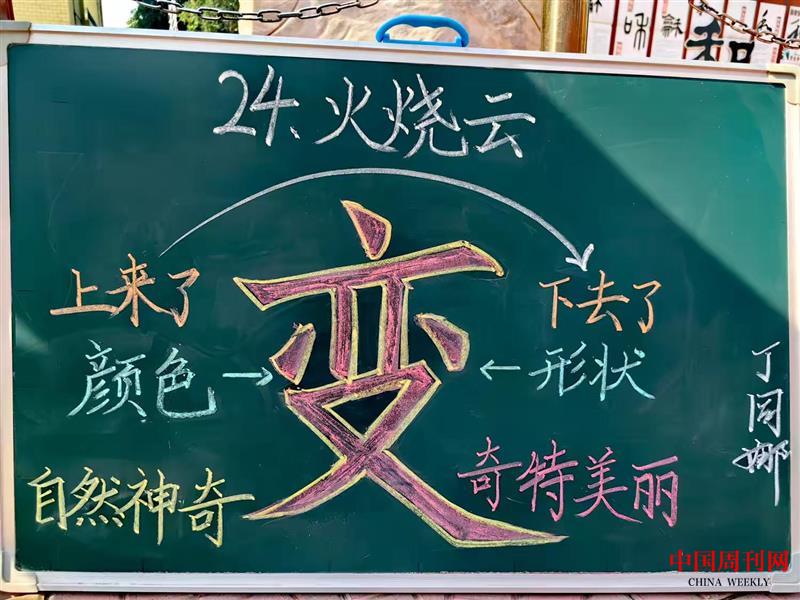 24、火烧云
上来了
下去了
变
颜色→
←形状
自然神奇
奇特美丽
丁冈娜
和
中国周刊网
CHINA WEEKLY